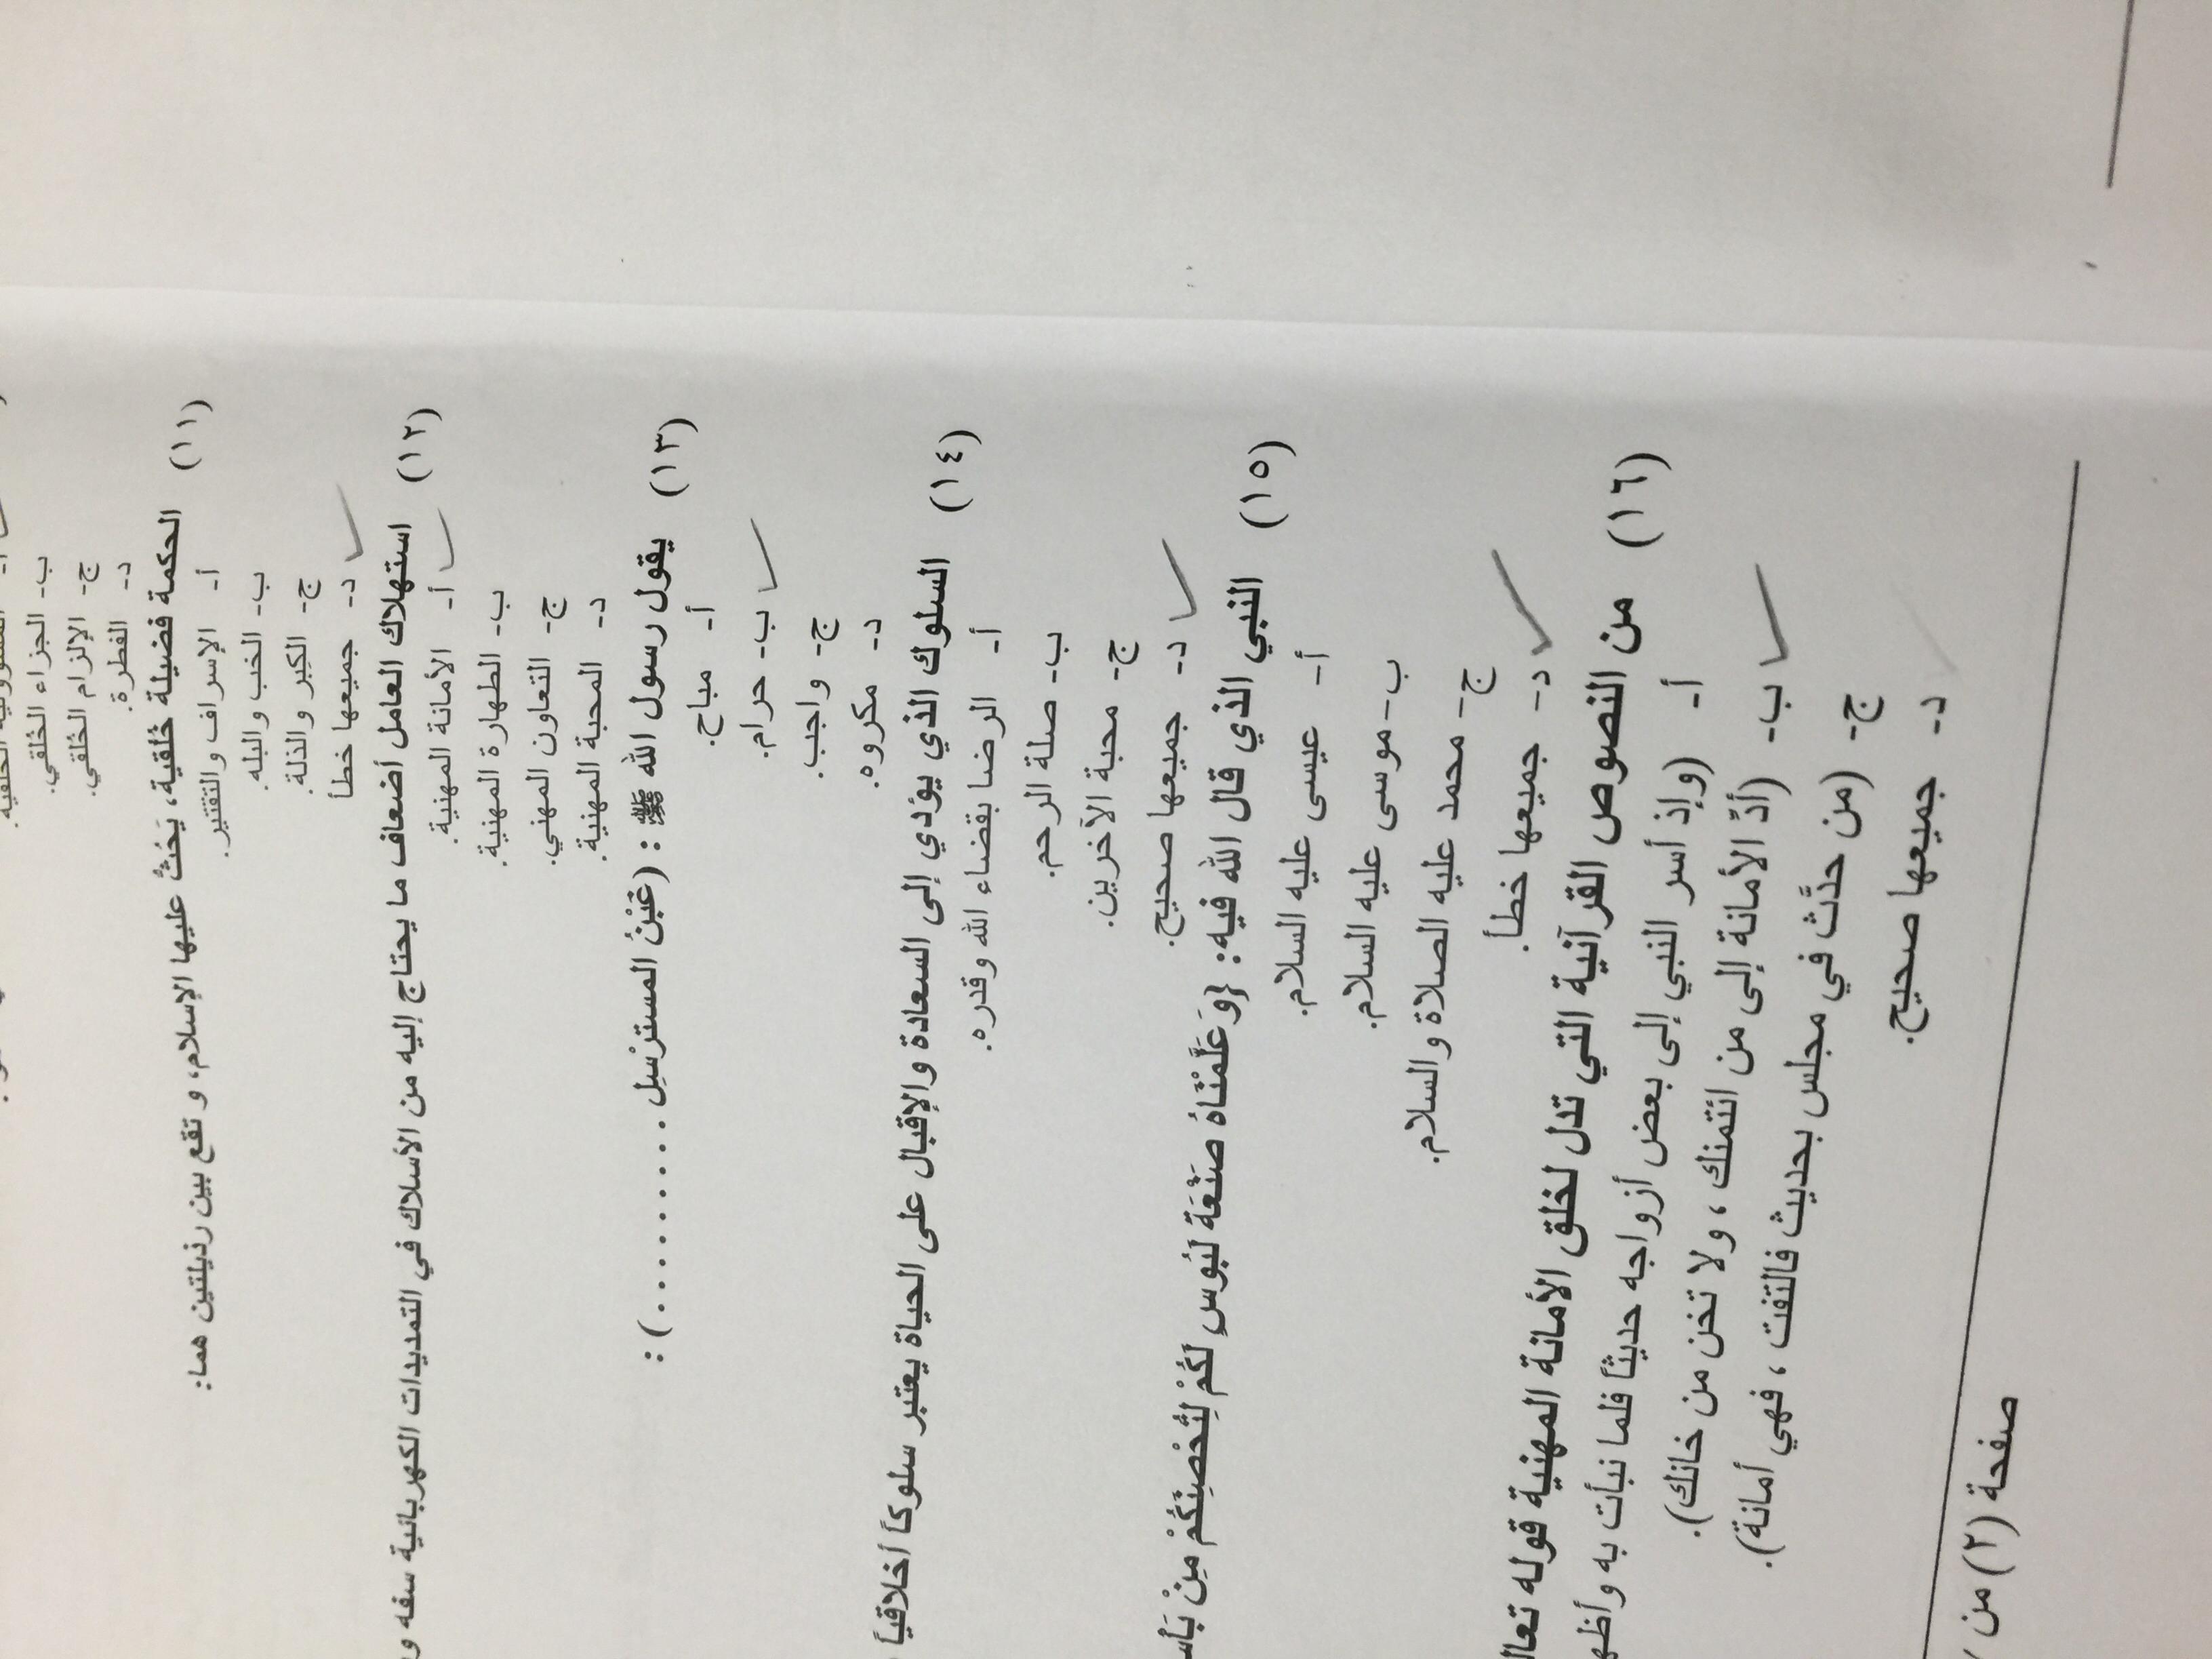 ب- الجزاء الخُلقي.
ج- الإلزام الخُلقي.
د- الفطرة.
(١١) الحكمة فضيلة خُلقية، يَحُثُّ عليها الإسلام، و تقع بين رذيلتين هما:
أ- الإسراف والتقتير.
ب- الخب والبله.
ج- الكِبر والذلة.
د- جميعها خطأ
(١٢) استهلاك العامل أضعاف ما يحتاج إليه من الأسلاك في التمديدات الكهربائية سفه و
أ- الأمانة المهنية.
ب- الطهارة المهنية.
ج- التعاون المهني.
د- المحبة المهنية.
(١٣) يقول رسول الله ﷺ : (غَبْنُ المسترْسِل ..........):
أ- مباح.
ب- حرام.
ج- واجب.
د- مكروه.
(١٤) السلوك الذي يؤدي إلى السعادة والإقبال على الحياة يعتبر سلوكاً أخلاقياً
أ- الرضا بقضاء الله وقدره.
ب- صلة الرحم.
ج- محبة الآخرين.
د- جميعها صحيح.
(١٥) النبي الذي قال الله فيه: {وَعَلَّمْنَاهُ صَنْعَةَ لَبُوسٍ لَكُمْ لِتُحْصِنَكُمْ مِنْ بَأْسِ
أ- عيسى عليه السلام.
ب- موسى عليه السلام.
ج- محمد عليه الصلاة والسلام.
د- جميعها خطأ.
(١٦) من النصوص القرآنية التي تدل لخلق الأمانة المهنية قوله تعال
أ- (وإذ أسر النبي إلى بعض أزواجه حديثاً فلما نبأت به وأظه
ب- (أدِّ الأمانة إلى من ائتمنك ، ولا تخن من خانك).
ج- (من حدَّث في مجلس بحديث فالتفت ، فهي أمانة).
د- جميعها صحيح.
صفحة (٢) من